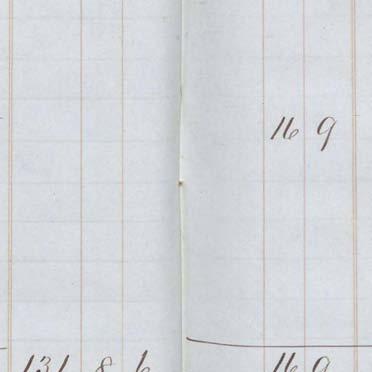 16 9
131 8 6 16 9